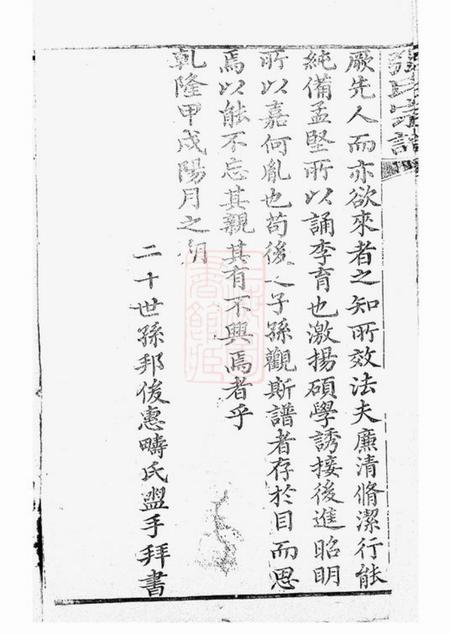 厥先人而亦欲來者之知所效法夫廉清脩潔行能
純備孟堅所以誦李育也激揚碩學誘接後進昭明
所以嘉何胤也苟後之子孫觀斯譜者存於目而思
焉以能不忘其親其有不興焉者乎
乾隆甲戌陽月之朔
二十世孫邦俊惠疇氏盥手拜書